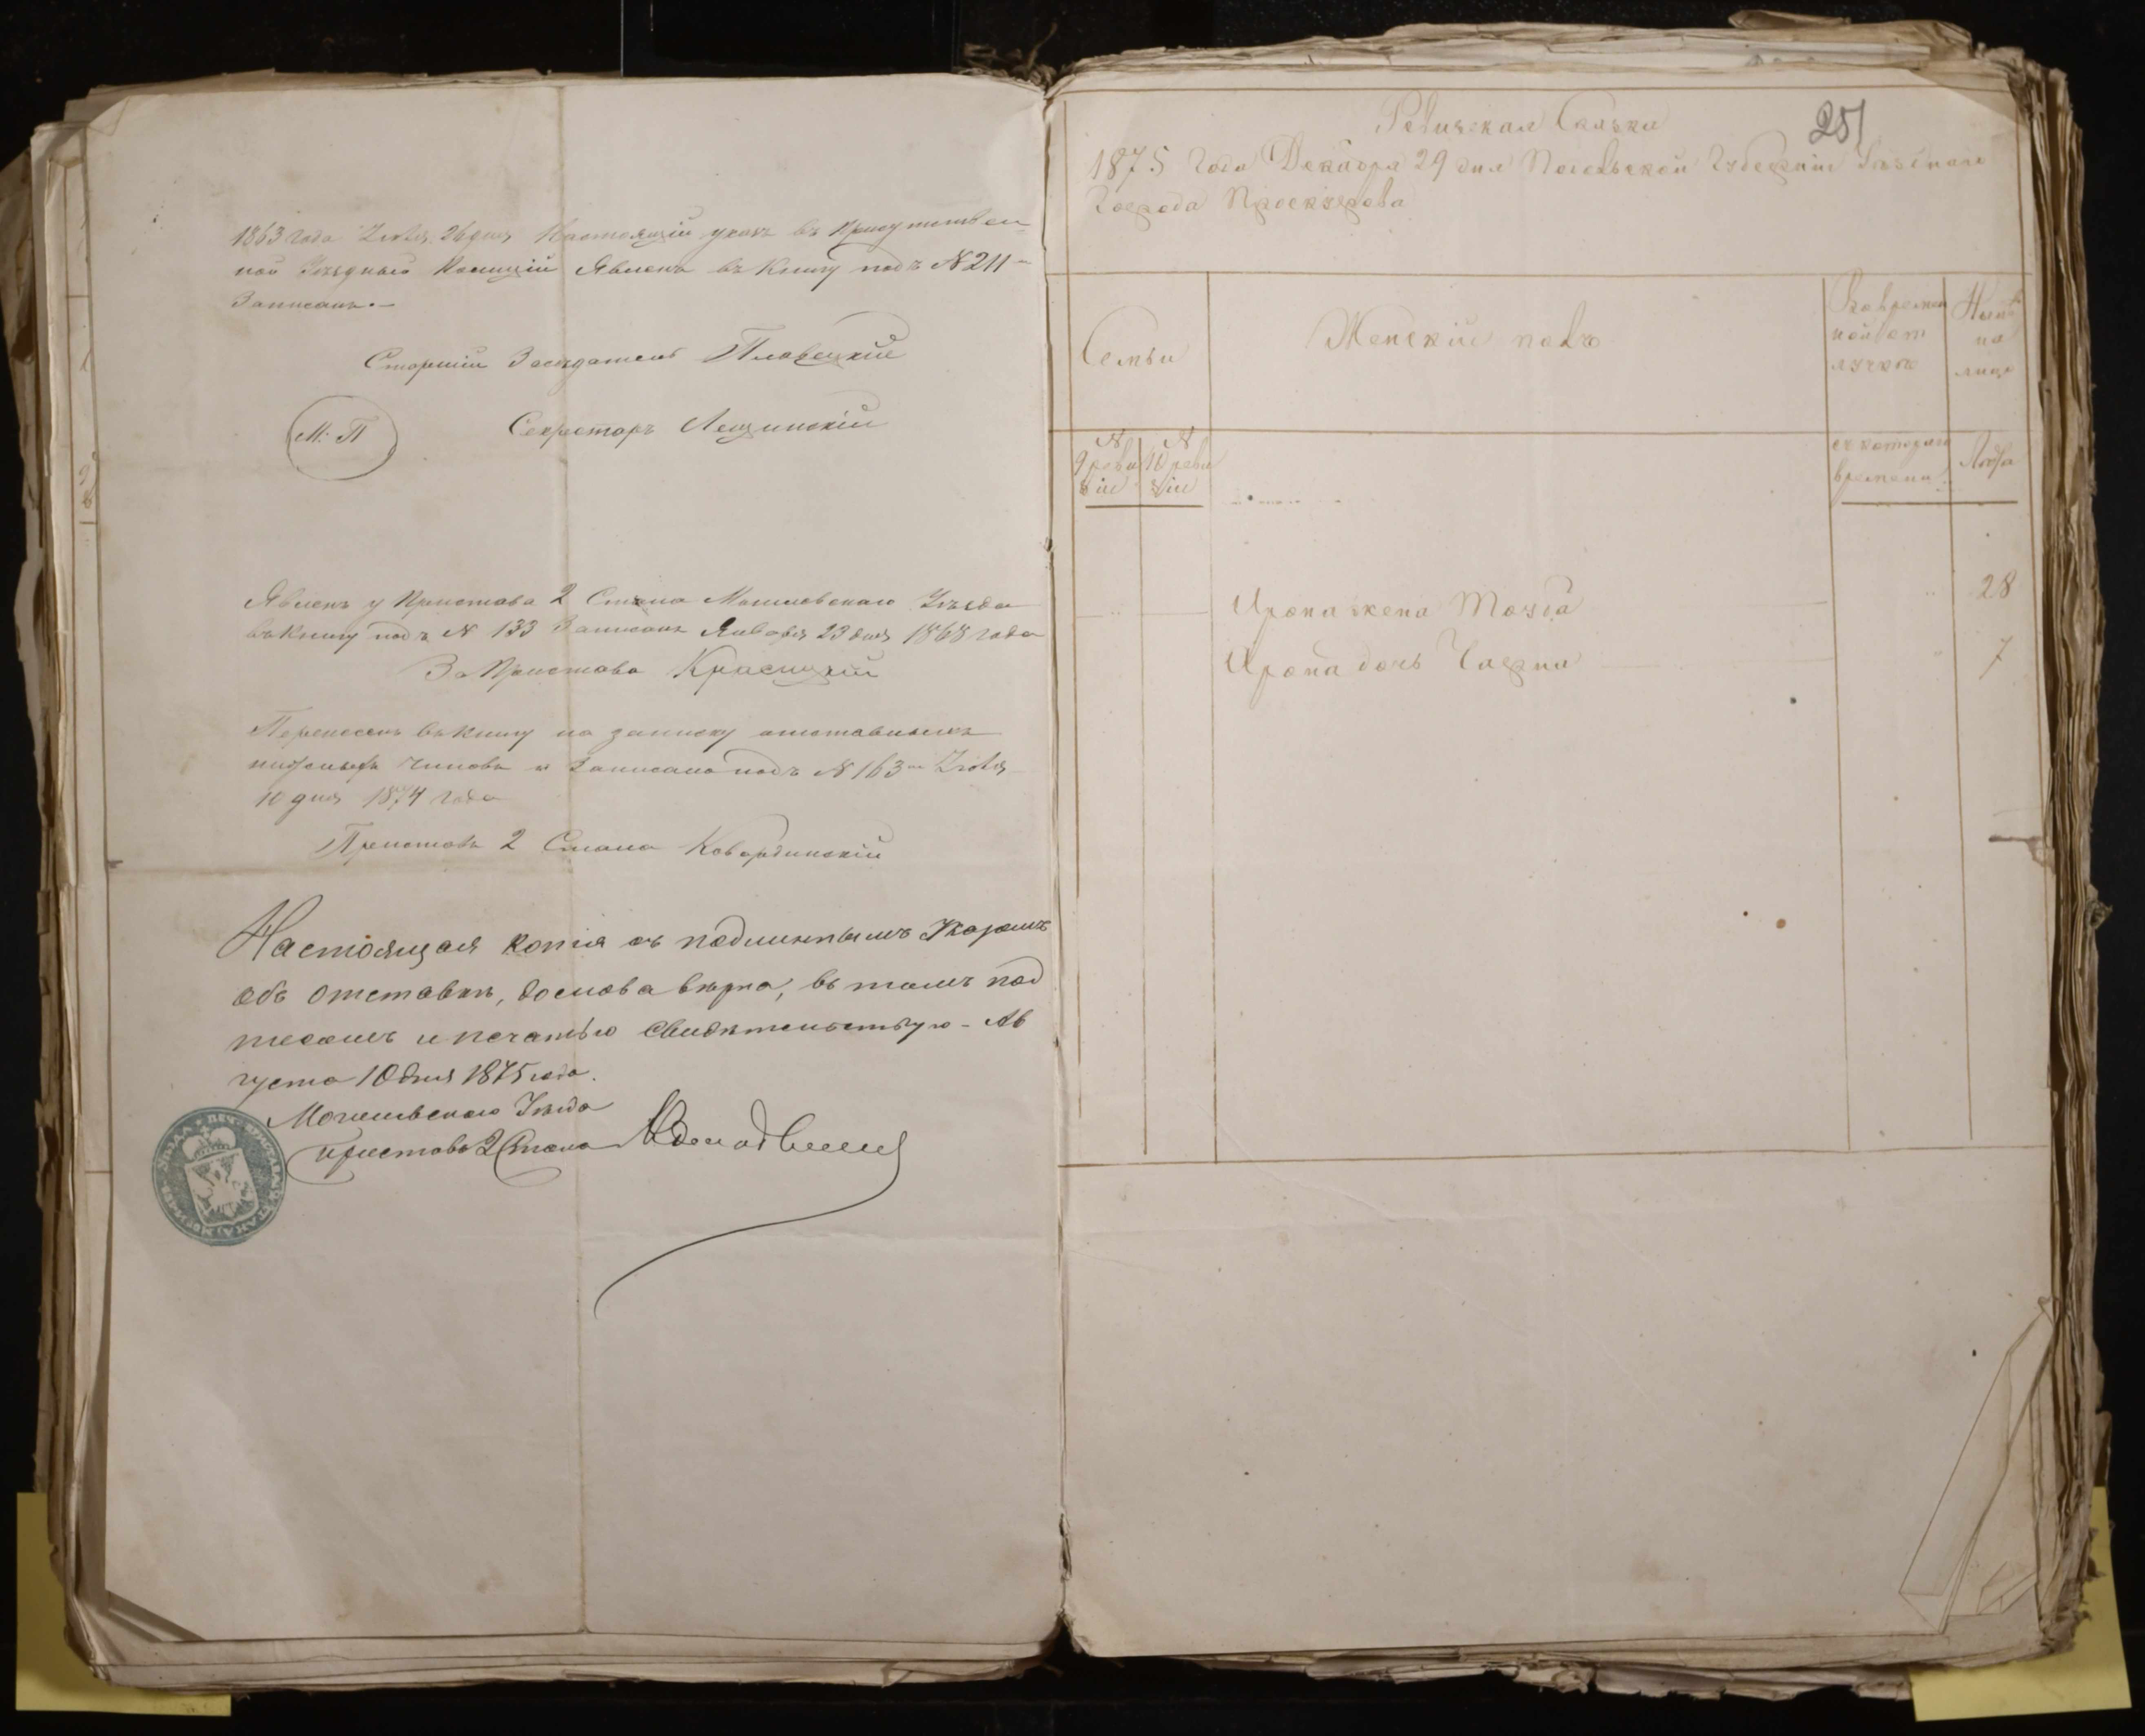 1863 года Iюля 26 дня Настоящiй указъ въ Присутствен=
ной Уездной Полицiи Явленъ въ Книгу подъ N 211м
Записанъ.—
Старшiй Заседатель
М. П Секретарь Лещинскiй
Явленъ у Пристава 2 Стана Могилевскаго Уѣзда
въ Книгу подъ N 133 Записанъ Января 23 дня 1868 года
За Пристава Красицкiй
Перенесенъ въ Книгу на записку отставныхъ
нижныхъ чиновъ и Записано подъ N 163м Iюля
10 дня 1874 года
Приставъ 2 Стана
Настоящая копiя съ подлиннымъ Указомъ
объ отставкѣ, дослова вѣрна, въ томъ под
писомъ и печатью свидѣтельствую - Ав
густа 10 дня 1875 года.
Могилевскаго Уѣзда
Приставъ 2 Стана
251
Ревизская Сказка
1875 года Декабря 29 дня Подольской Губернiи
Города Проскурова
Семьи
Женскiй полъ
Во времен
ной от
лучке
Нынѣ
на
лицо
N
9 реви
зiи
N
10 реви
зiи
съ котораго
времени
Лѣта
Арона жена 28
Арона дочь 7